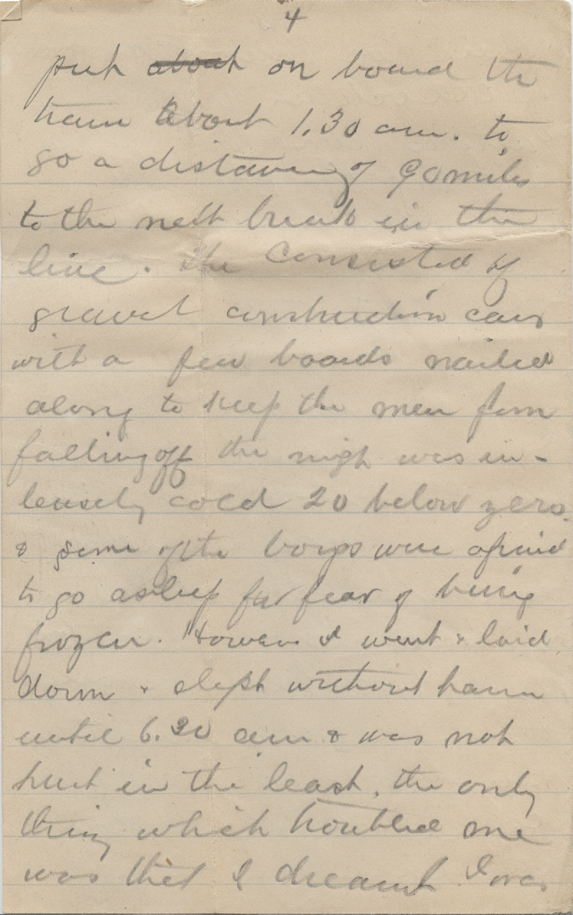 4
put about on board the
train about 1.30 am. to
go a distance of 90 miles
to the next break in the
line. The Consisted of
gravel construction cars
with a few boards nailed
along to keep the men from
falling off the nigh was in-
tensely cold 20 below zero.
& some of the boys were afraid
to go asleep for fear of being
frozen. However I went & laid
down & slept without harm
until 6.30 am & was not
hurt in the least, the only
thing which troubled me
was that I dreamt I was